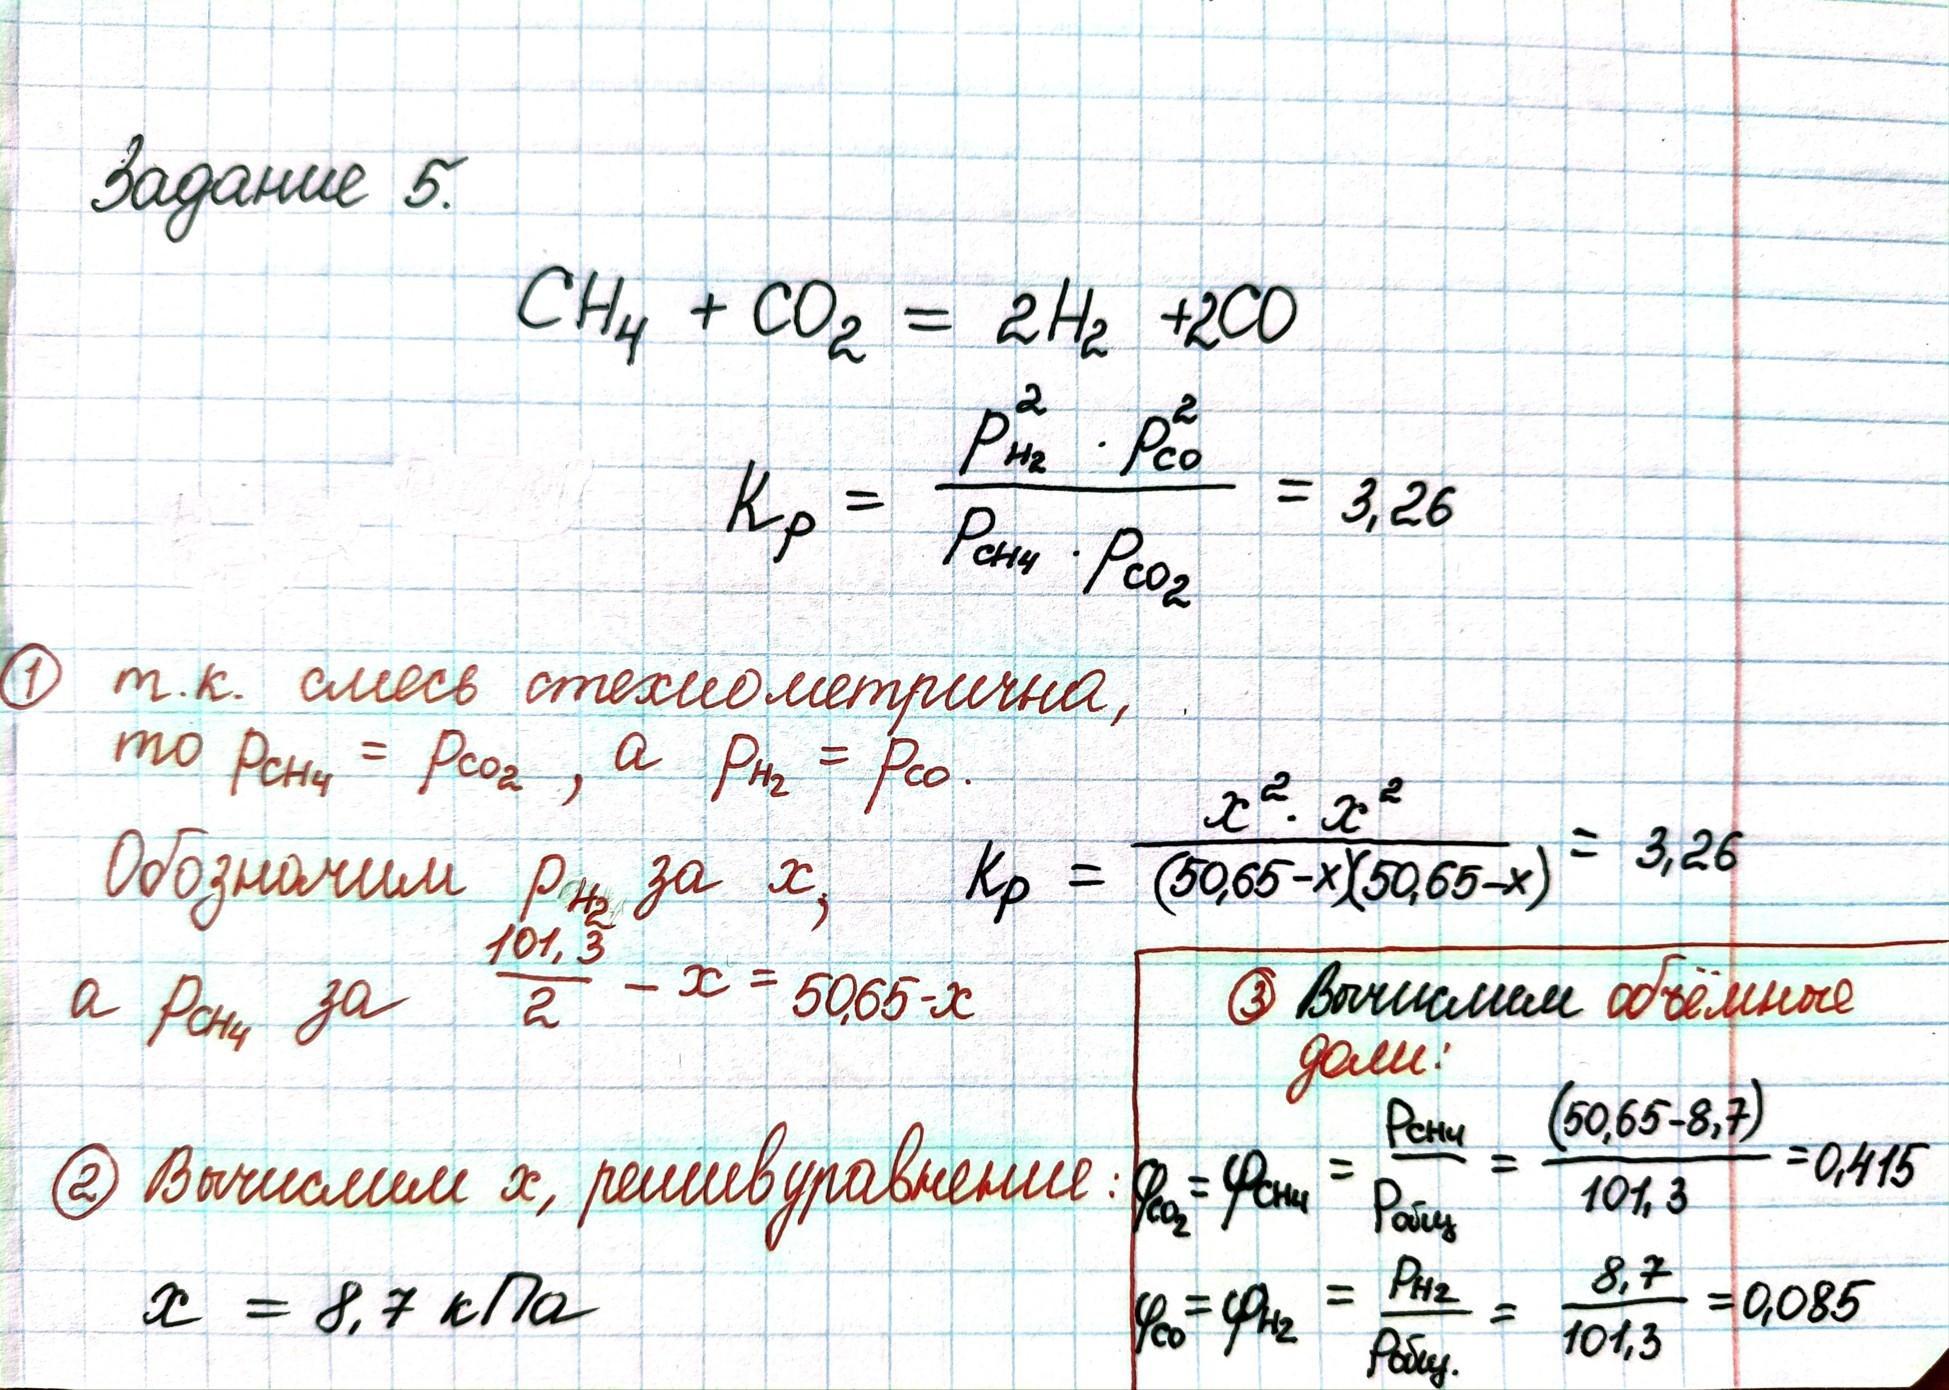 Задание 5.
CH₄ + CO₂ = 2H₂ +2CO
Kp = (P²H₂ · P²CO) / (PCH₄ · PCO₂) = 3,26
① т.к. смесь стехиометрична,
то PCH₄ = PCO₂, а PH₂ = PCO.
Обозначим PH₂ за x,
а PCH₄ за 101,3/2 - x = 50,65-x
Kp = (x² · x²) / ((50,65-x)(50,65-x)) = 3,26
② Вычислим x, решив уравнение:
x = 8,7 кПа
③ Вычислим объёмные
доли:
φCO₂ = φCH₄ = PCH₄/Pобщ = (50,65-8,7)/101,3 = 0,415
φCO = φH₂ = PH₂/Pобщ. = 8,7/101,3 = 0,085